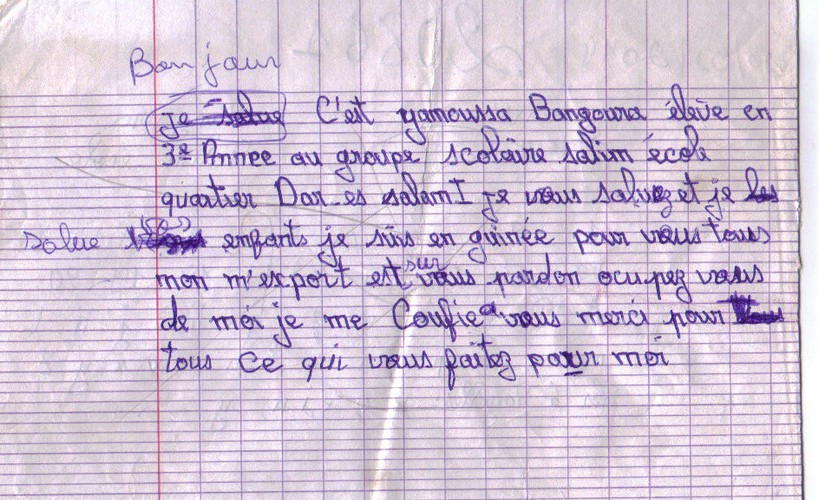 Bonjour
je salue C'est yamoussa Bangoura élève en
3e Année au groupe scolaire salim école
quartier Dar-es salam I je vous saluez et je les
salue (ses) enfants je suis en guinée pour vous tous
mon m'esport est sur vous pardon ocupez vous
de moi je me Confie a vous merci pour
tous ce qui vous faitez pour moi